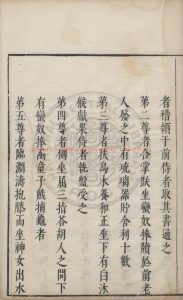 者稽顙于前侍者取其書通之
第二尊者合掌趺坐蠻奴捧牘於前老
人發之中有琉璃器貯舍利十數
第三尊者扶烏木養和正坐下有白沐
猴獻果侍者執盤受之
第四尊者側坐屈三指答胡人之問下
有蠻奴捧函童子戲捕龜者
第五尊者臨淵濤抱膝而坐神女出水